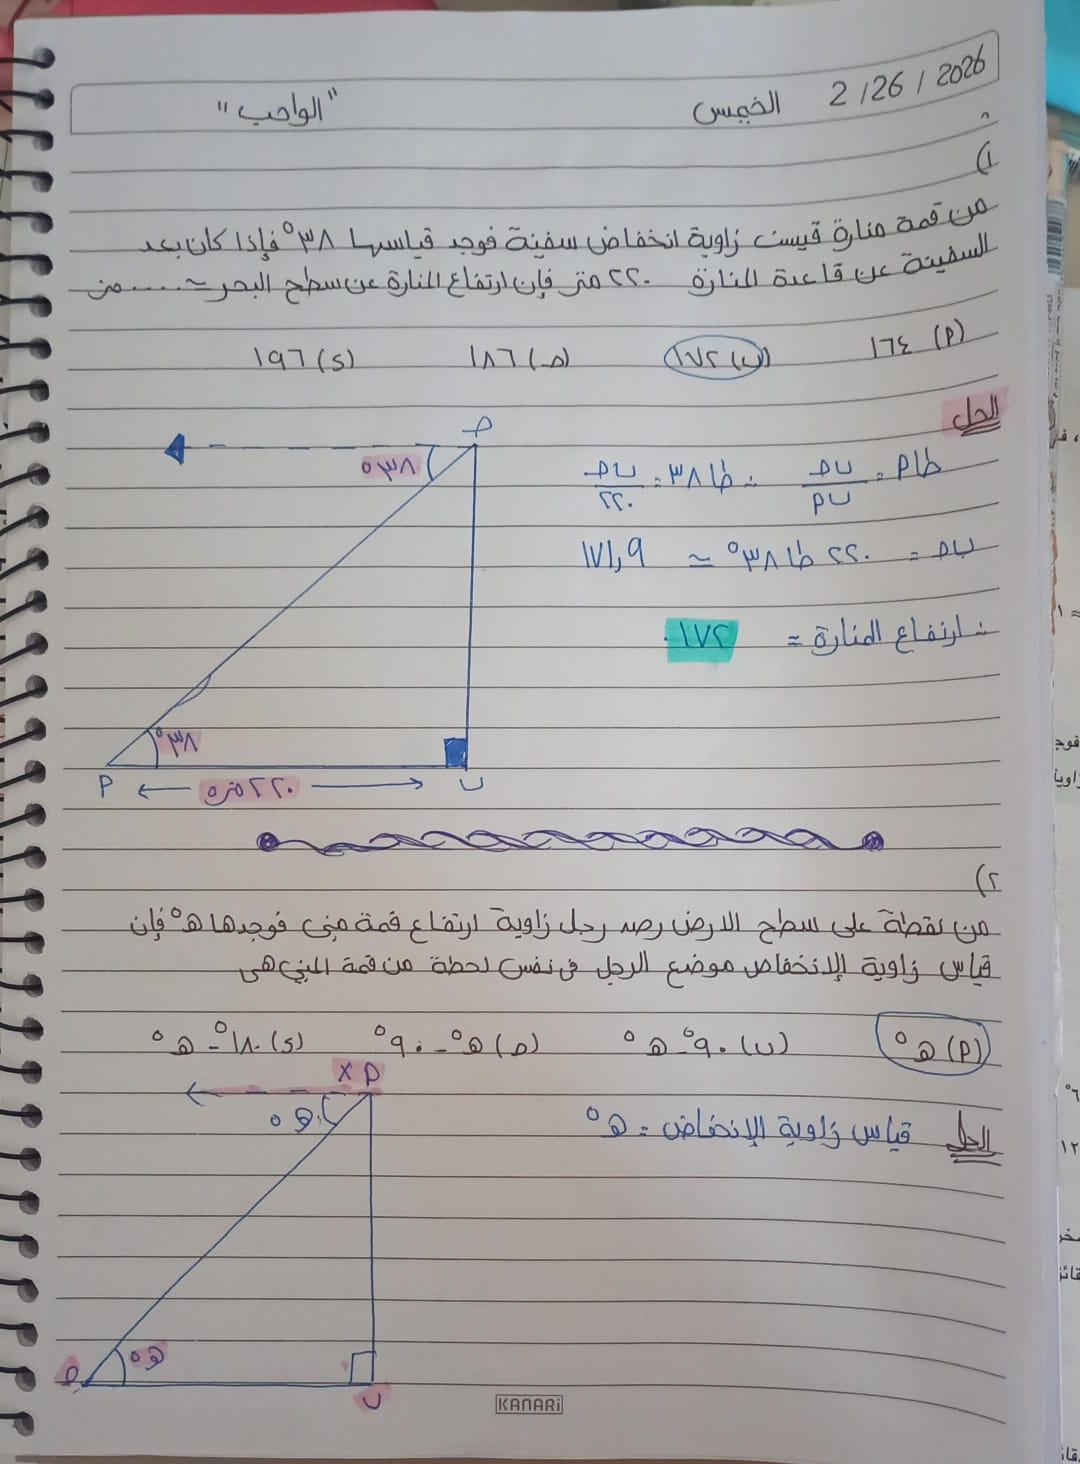 2 / 26 / 2026 الخميس "الواجب"
١)
من قمة منارة قيست زاوية انخفاض سفينة فوجد قياسها ٣٨° فإذا كان بعد
السفينة عن قاعدة المنارة ٢٢٠ متر فإن ارتفاع المنارة عن سطح البحر ≃ ..... متر
(P) ١٦٤ (ب) ١٧٢ (حـ) ١٨٦ (د) ١٩٦
الحل
طا P = ب حـ / ب P ∴ طا ٣٨ = ب حـ / ٢٢٠
ب حـ = ٢٢٠ طا ٣٨° ≃ ١٧١,٩
∴ ارتفاع المنارة = ١٧٢
حـ
٣٨°
٣٨°
P ٢٢٠ متر ب
٢)
من نقطة على سطح الارض رصد رجل زاوية ارتفاع قمة مبنى فوجدها هـ° فإن
قياس زاوية الانخفاض موضع الرجل فى نفس لحظة من قمة المبني هى
(P) هـ° (ب) ٩٠° - هـ° (حـ) هـ° - ٩٠° (د) ١٨٠° - هـ°
X P
الحل قياس زاوية الإنخفاض = هـ°
هـ°
هـ°
حـ ب
KANARi